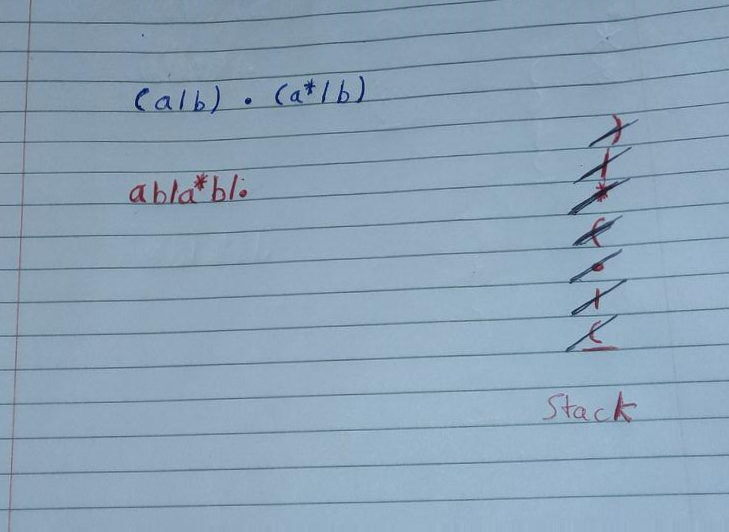 (a|b) . (a*|b)
)
|
ab|a*b|.
*
(
.
|
(
Stack